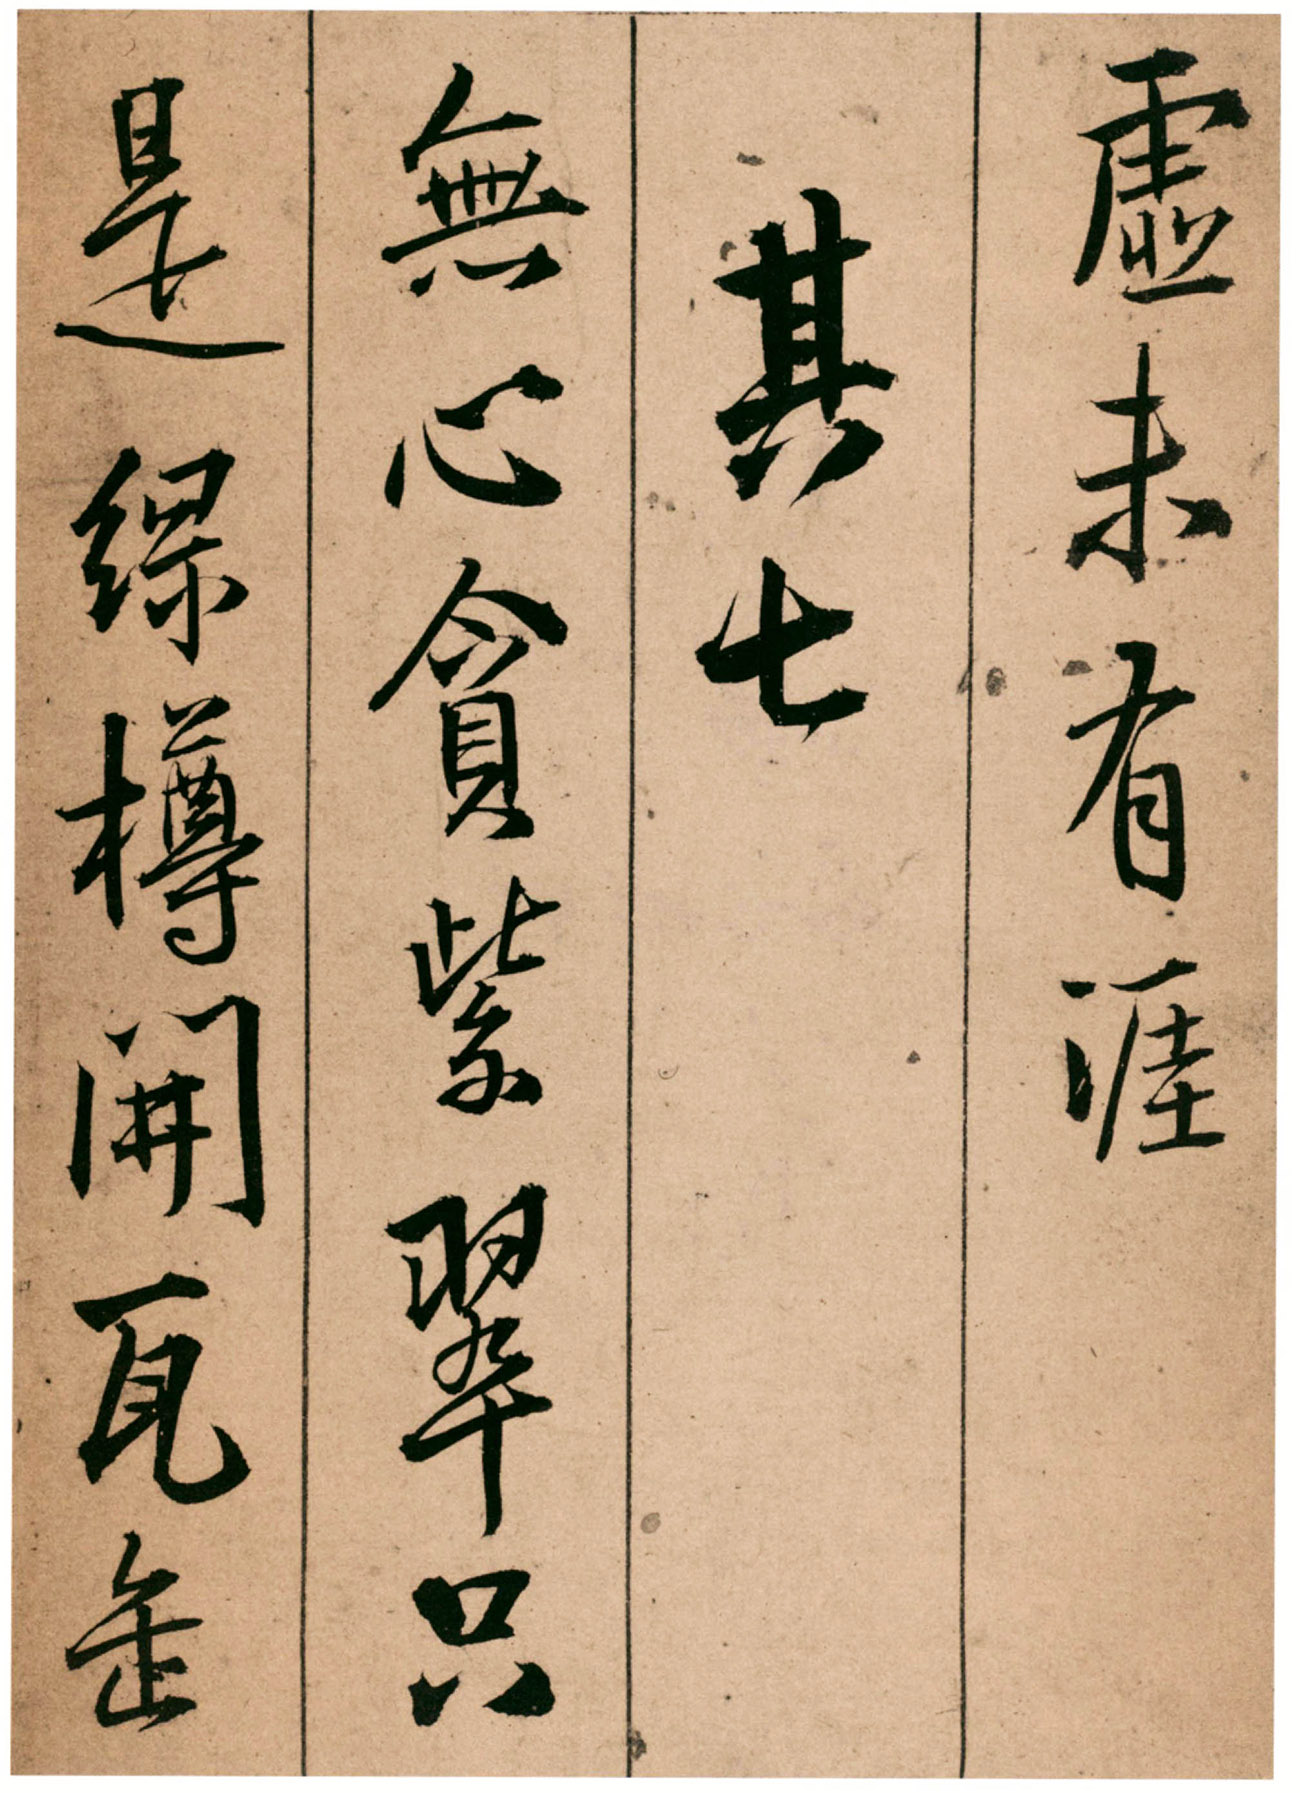 虛未有涯
其七
無心貪紫翠只
是緥樽開瓦缶